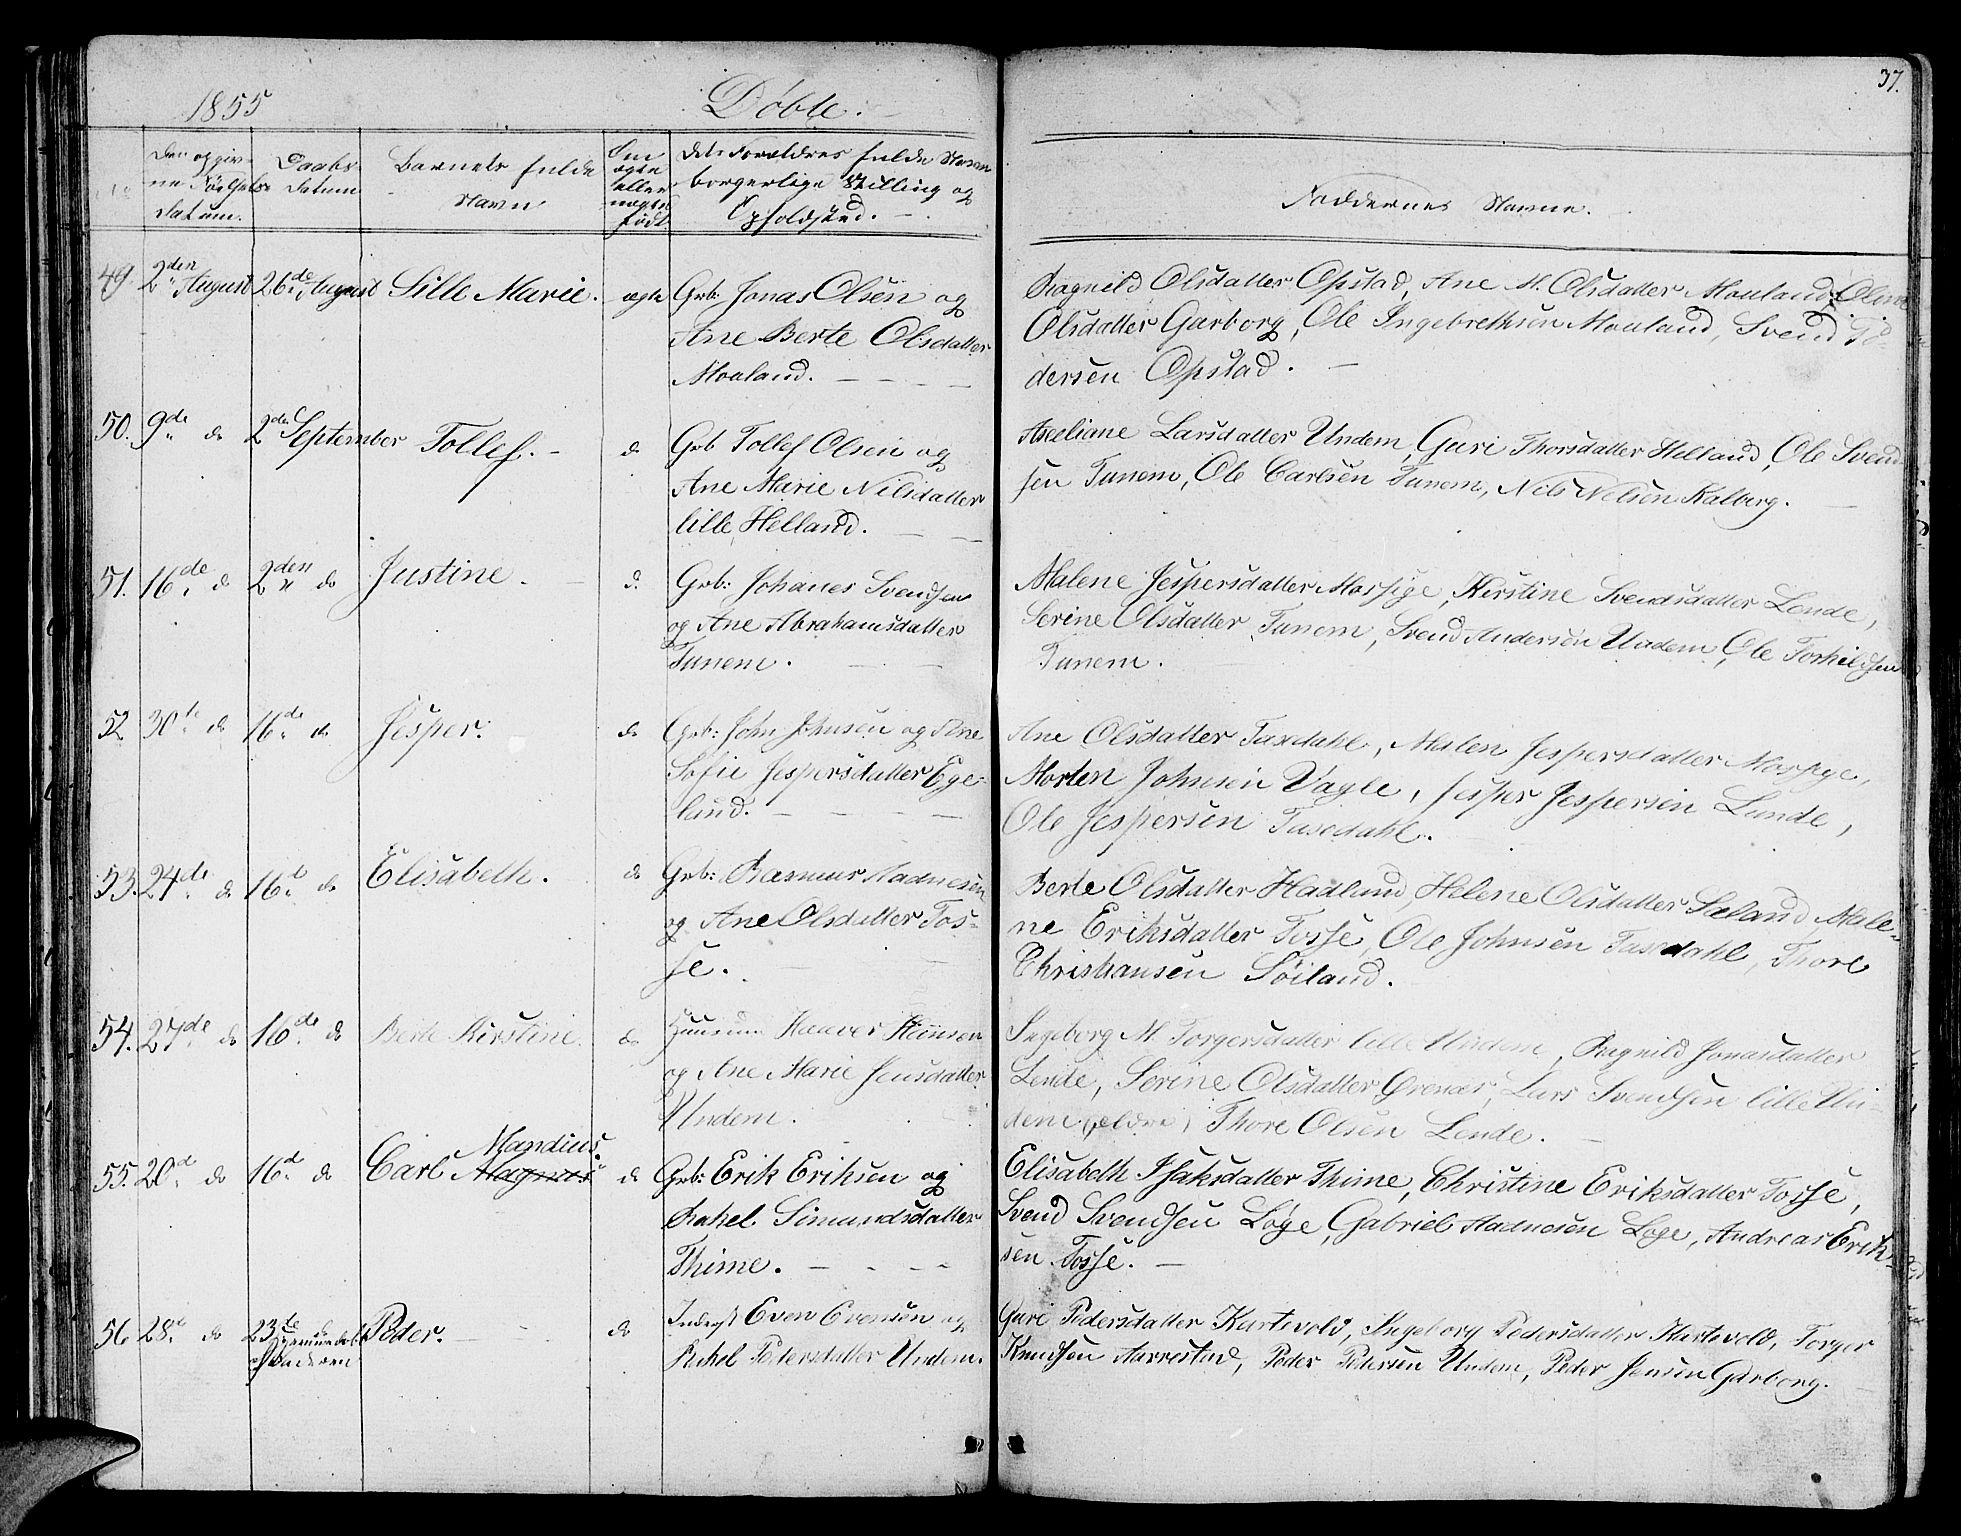 1855 Døbte. 37.
Den opgivne Fødsels Datum.
Daabs Datum
Barnets fulde Navn
Om ægte eller uægte født
Dets Forældres fulde Navne borgerlige Stilling og Opholdssted.
Faddernes Navne.
49. 2den August 26de August Sille Marie. ægte Grb: Jonas Olsen og
Ane Berte Olsdatter
Moaland.
Ragnild Olsdatter Opstad, Ane M. Olsdatter Moaland, Oline
Olsdatter Garborg, Ole Ingebrethsen Moaland, Svend
dersen Opstad.
50. 9de do 2den September Tollef. do Grb Tollef Olsen og
Ane Marie Nilsdatter
lille Helland.
Aseeliane Larsdatter Undem, Guri Thorsdatter Helland, Ole Svend-
sen Tunem, Ole Carlsen Tunem, Nils Nilsen Kalberg.
51. 16de do 2den do Justine. do Grb: Johanes Svendsen
og Ane Abrahamsdatter
Tunem.
Malene Jespersdatter Mossige, Kirstine Svendsdatter Lende,
Serine Olsdatter Tunem, Svend Andersen Undem, Ole Torkildsen
Tunem.
52. 30te do 16de do Jesper. do Grb: John Johnsen og Ane
Sofie Jespersdatter Ege-
land.
Ane Olsdatter Taxdahl, Malen Jespersdatter Mossige,
Morten Johnsen Vagle, Jesper Jespersen Lunde,
Ole Jespersen Taxdahl.
53. 24de do 16de do Elisabeth. do Grb: Rasmus Aadnesen
og Ane Olsdatter Tos-
se.
Berte Olsdatter Hadland, Helene Olsdatter Sæland, Male-
ne Eriksdatter Tosse, Ole Johnsen Taxdahl, Thore
Christiansen Söiland.
54. 27de do 16de do Berte Kirstine. do Huusm Haaver Hansen
og Ane Marie Jensdatter
Undem.
Ingeborg M. Torgersdatter lille Undem, Ragnild Jonasdatter
Lende, Serine Olsdatter Ørenær, Lars Svendsen lille Un-
dem (ældre) Thore Olsen Lende.
55. 20d do 16d do Carl Magnus Mandius. do Grb: Erik Eriksen og
Rakel Simundsdatter
Thime.
Elisabeth Isaksdatter Thime, Christine Eriksdatter Tosse,
Svend Svendsen Løge, Gabriel Aadnesen Løge, Andreas Erik-
sen Tosse.
56. 28de do 23de do Peder. do Inderst Even Evensen og
Rakel Pedersdatter Undem.
Guri Pedersdatter Kartevold, Ingeborg Pedersdatter Kartevold, Torger
Knudsen Aarrestad, Peder Pedersen Undem, Peder Jensen Garborg.